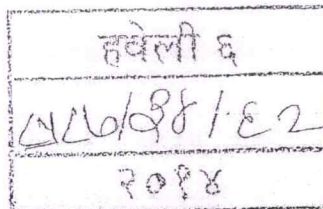 हवेली ६
५८७/३४/६२
२०१४